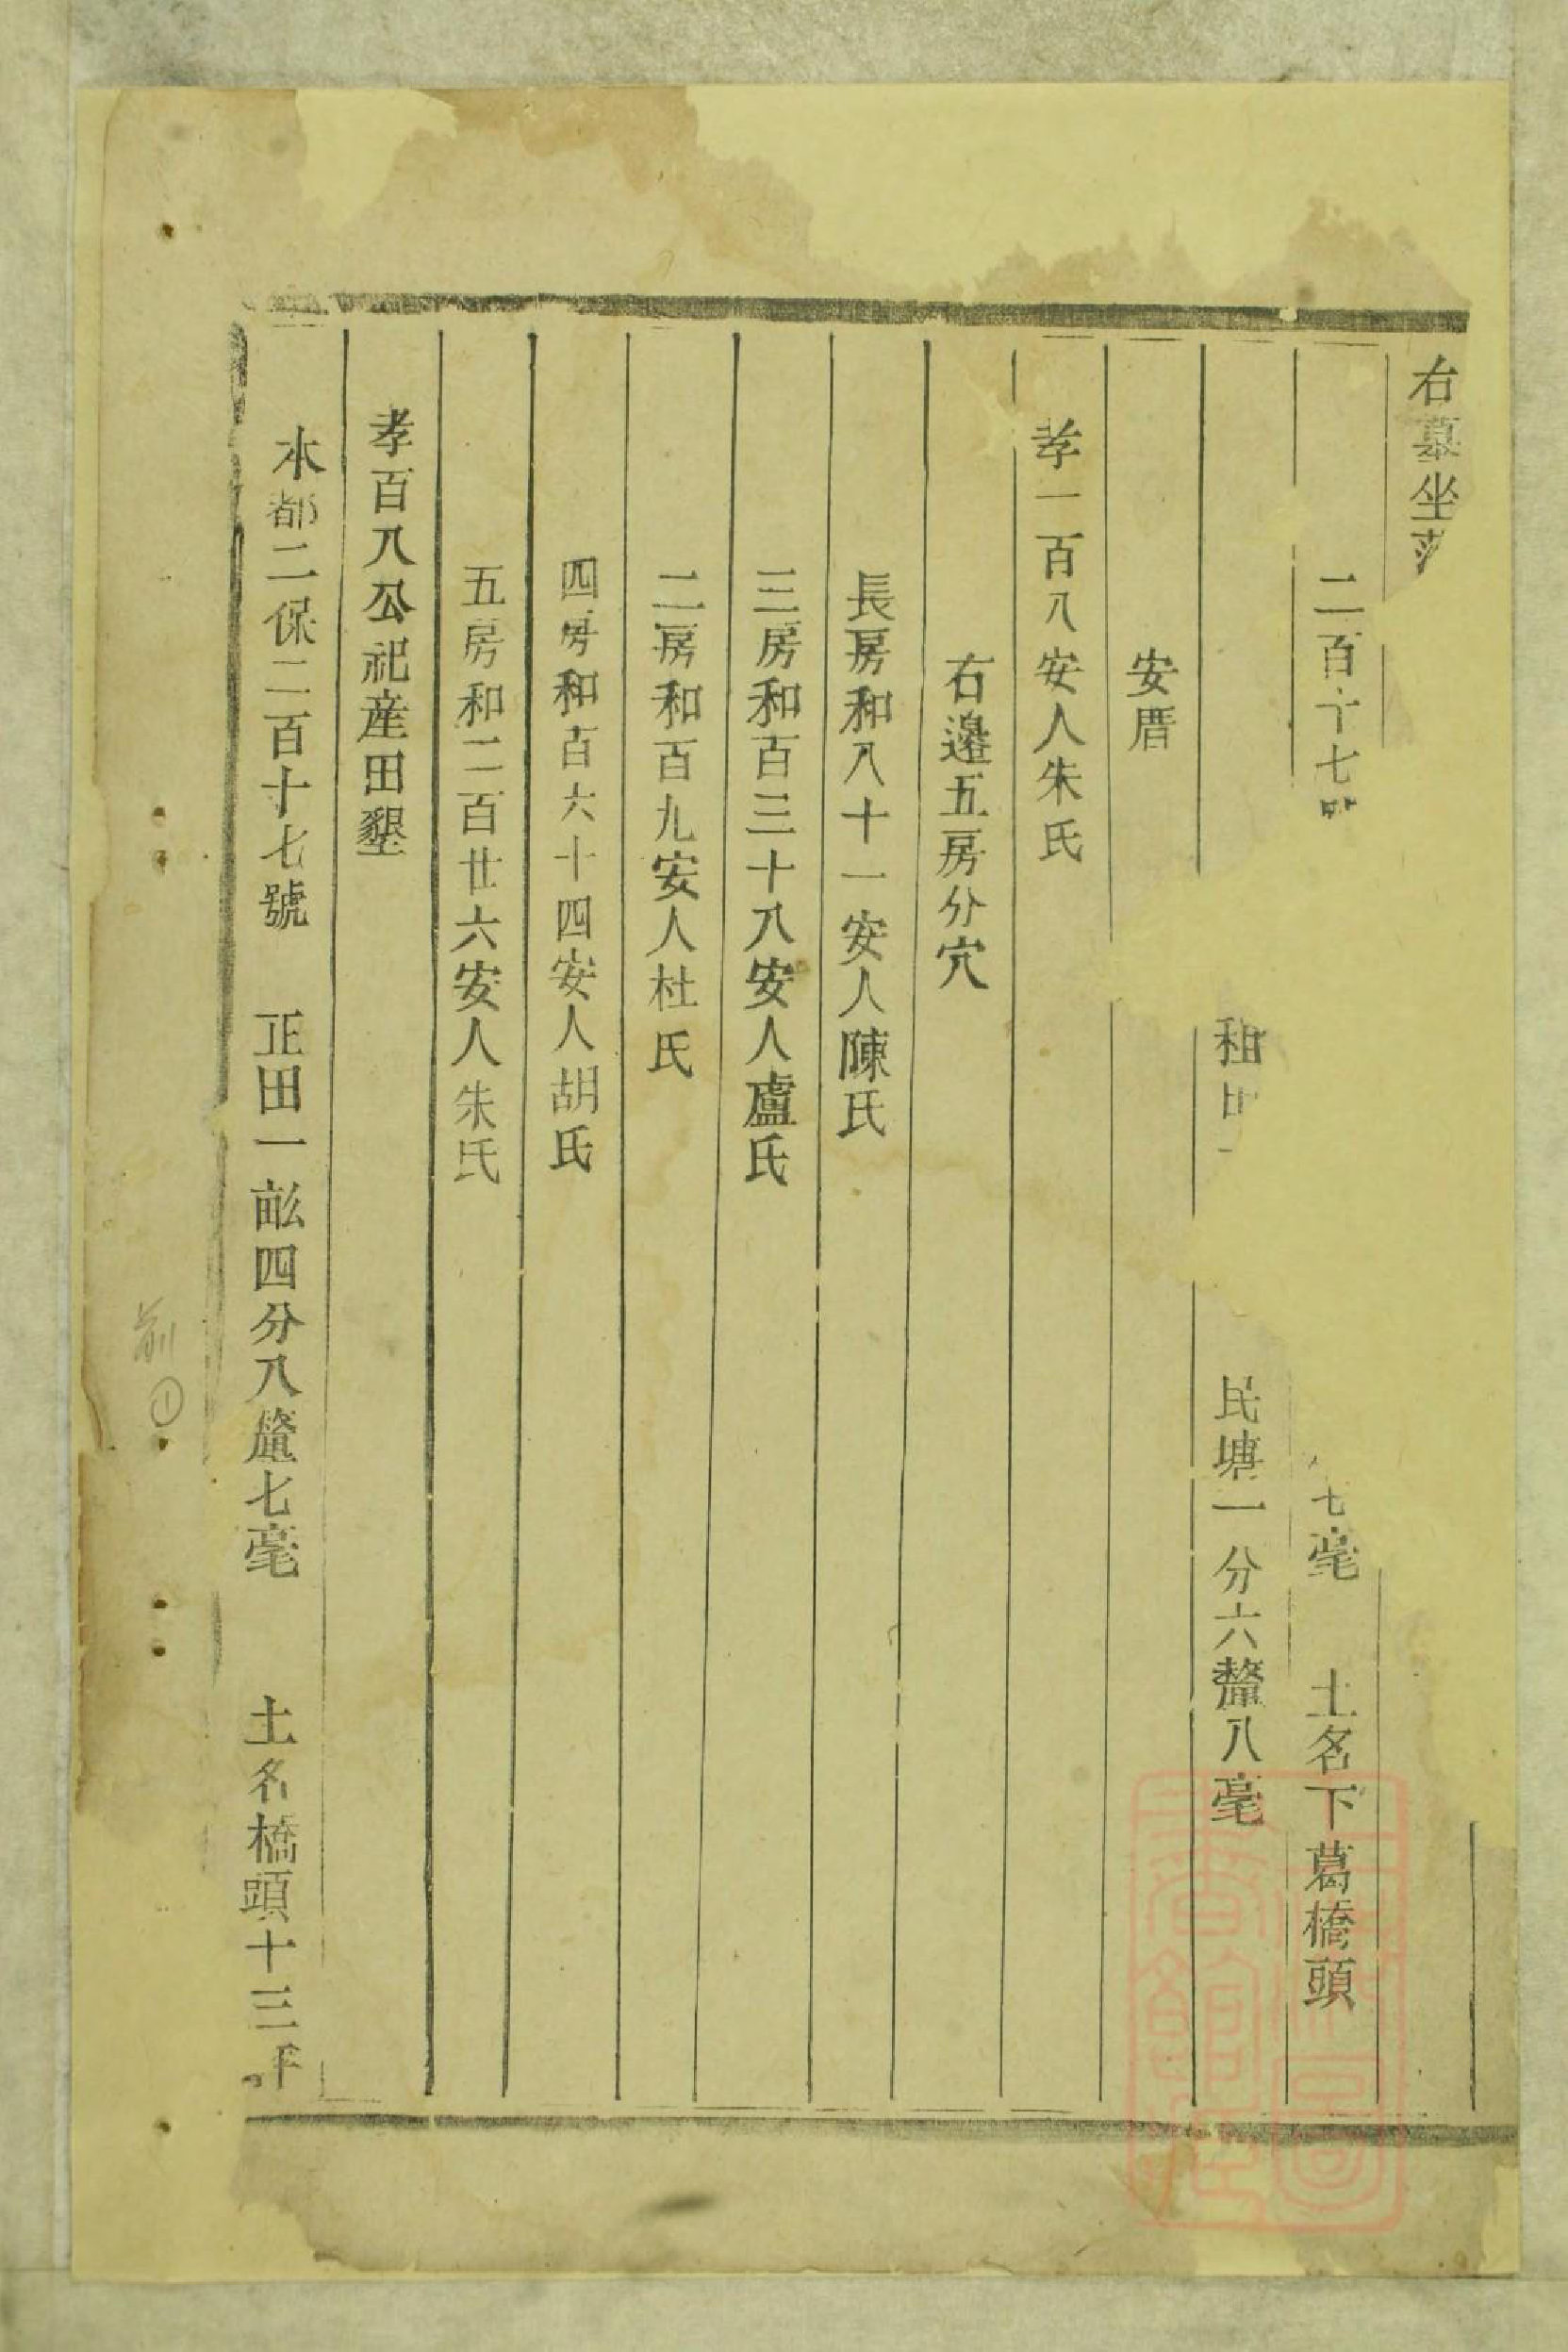 右墓坐落
二百十七 七毫 土名下葛橋頭
租 民塘一分六釐八毫
安厝
孝一百八安人朱氏
右邊五房分穴
長房和八十一安人陳氏
三房和百三十八安人盧氏
二房和百九安人杜氏
四房和百六十四安人胡氏
五房和二百廿六安人朱氏
孝百八公祀產田墾
本都二保二百十七號 正田一畝四分八釐七毫 土名橋頭十三
前①
上海圖書館藏